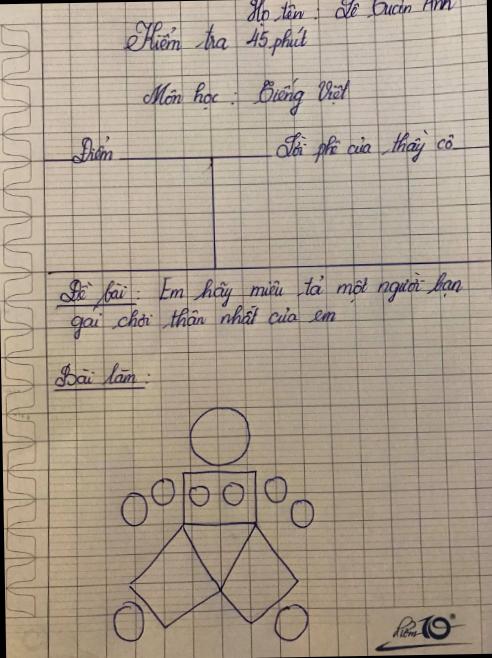 Họ tên : Lê Xuân Anh
Kiểm tra 45 phút
Môn học : Tiếng Việt
Điểm
Lời phê của thầy cô
Đề bài : Em hãy miêu tả một người bạn
gái chơi thân nhất của em
Bài làm :
Điểm 10